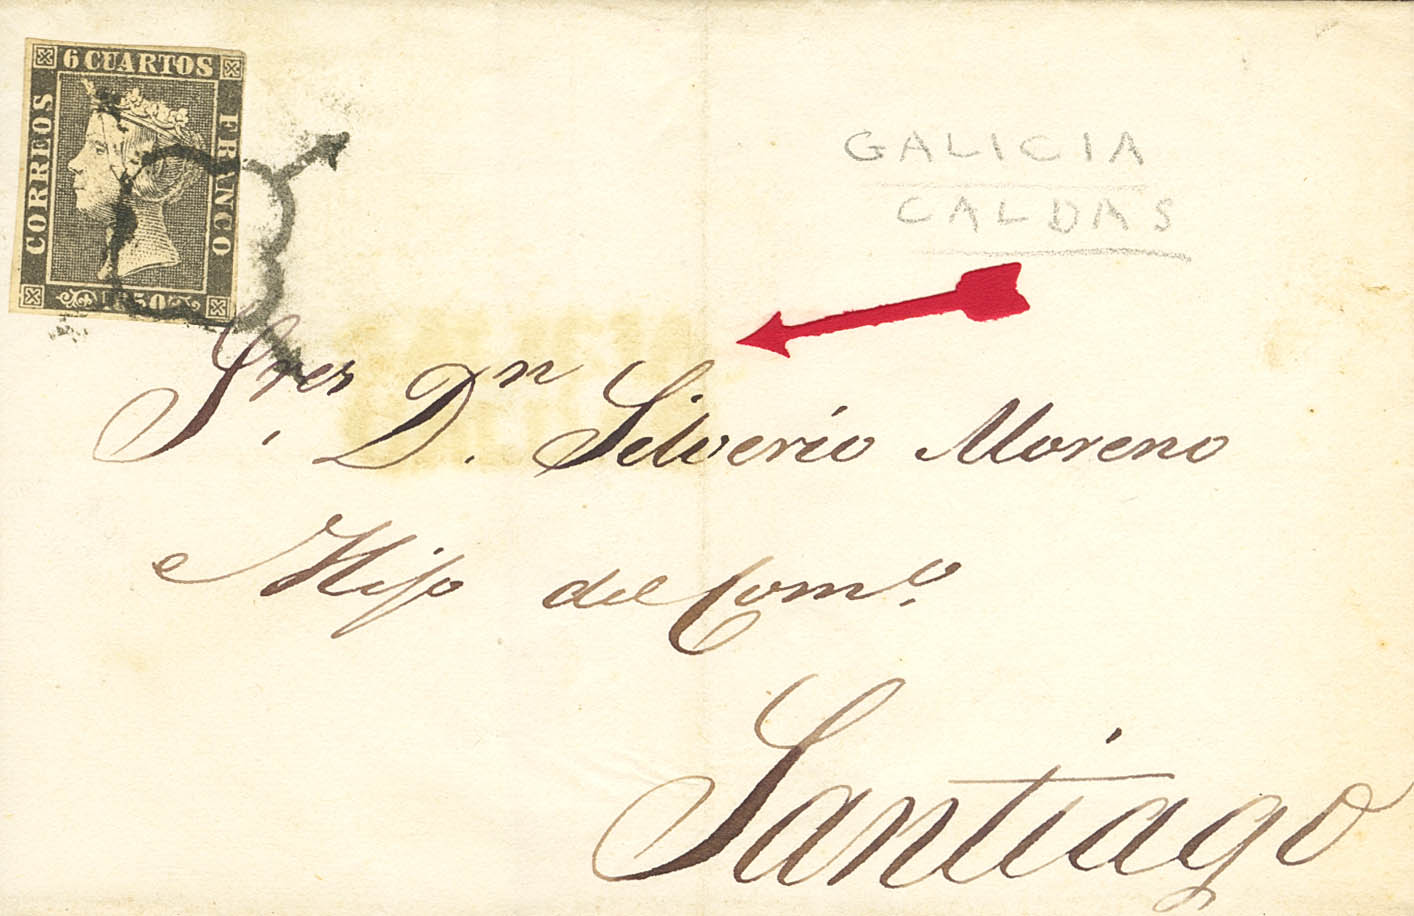 6 CUARTOS
CORREOS
FRANCO
1850
GALICIA
CALDAS
Sres. Dn. Silverio Moreno
e Hijo del Como.
Santiago